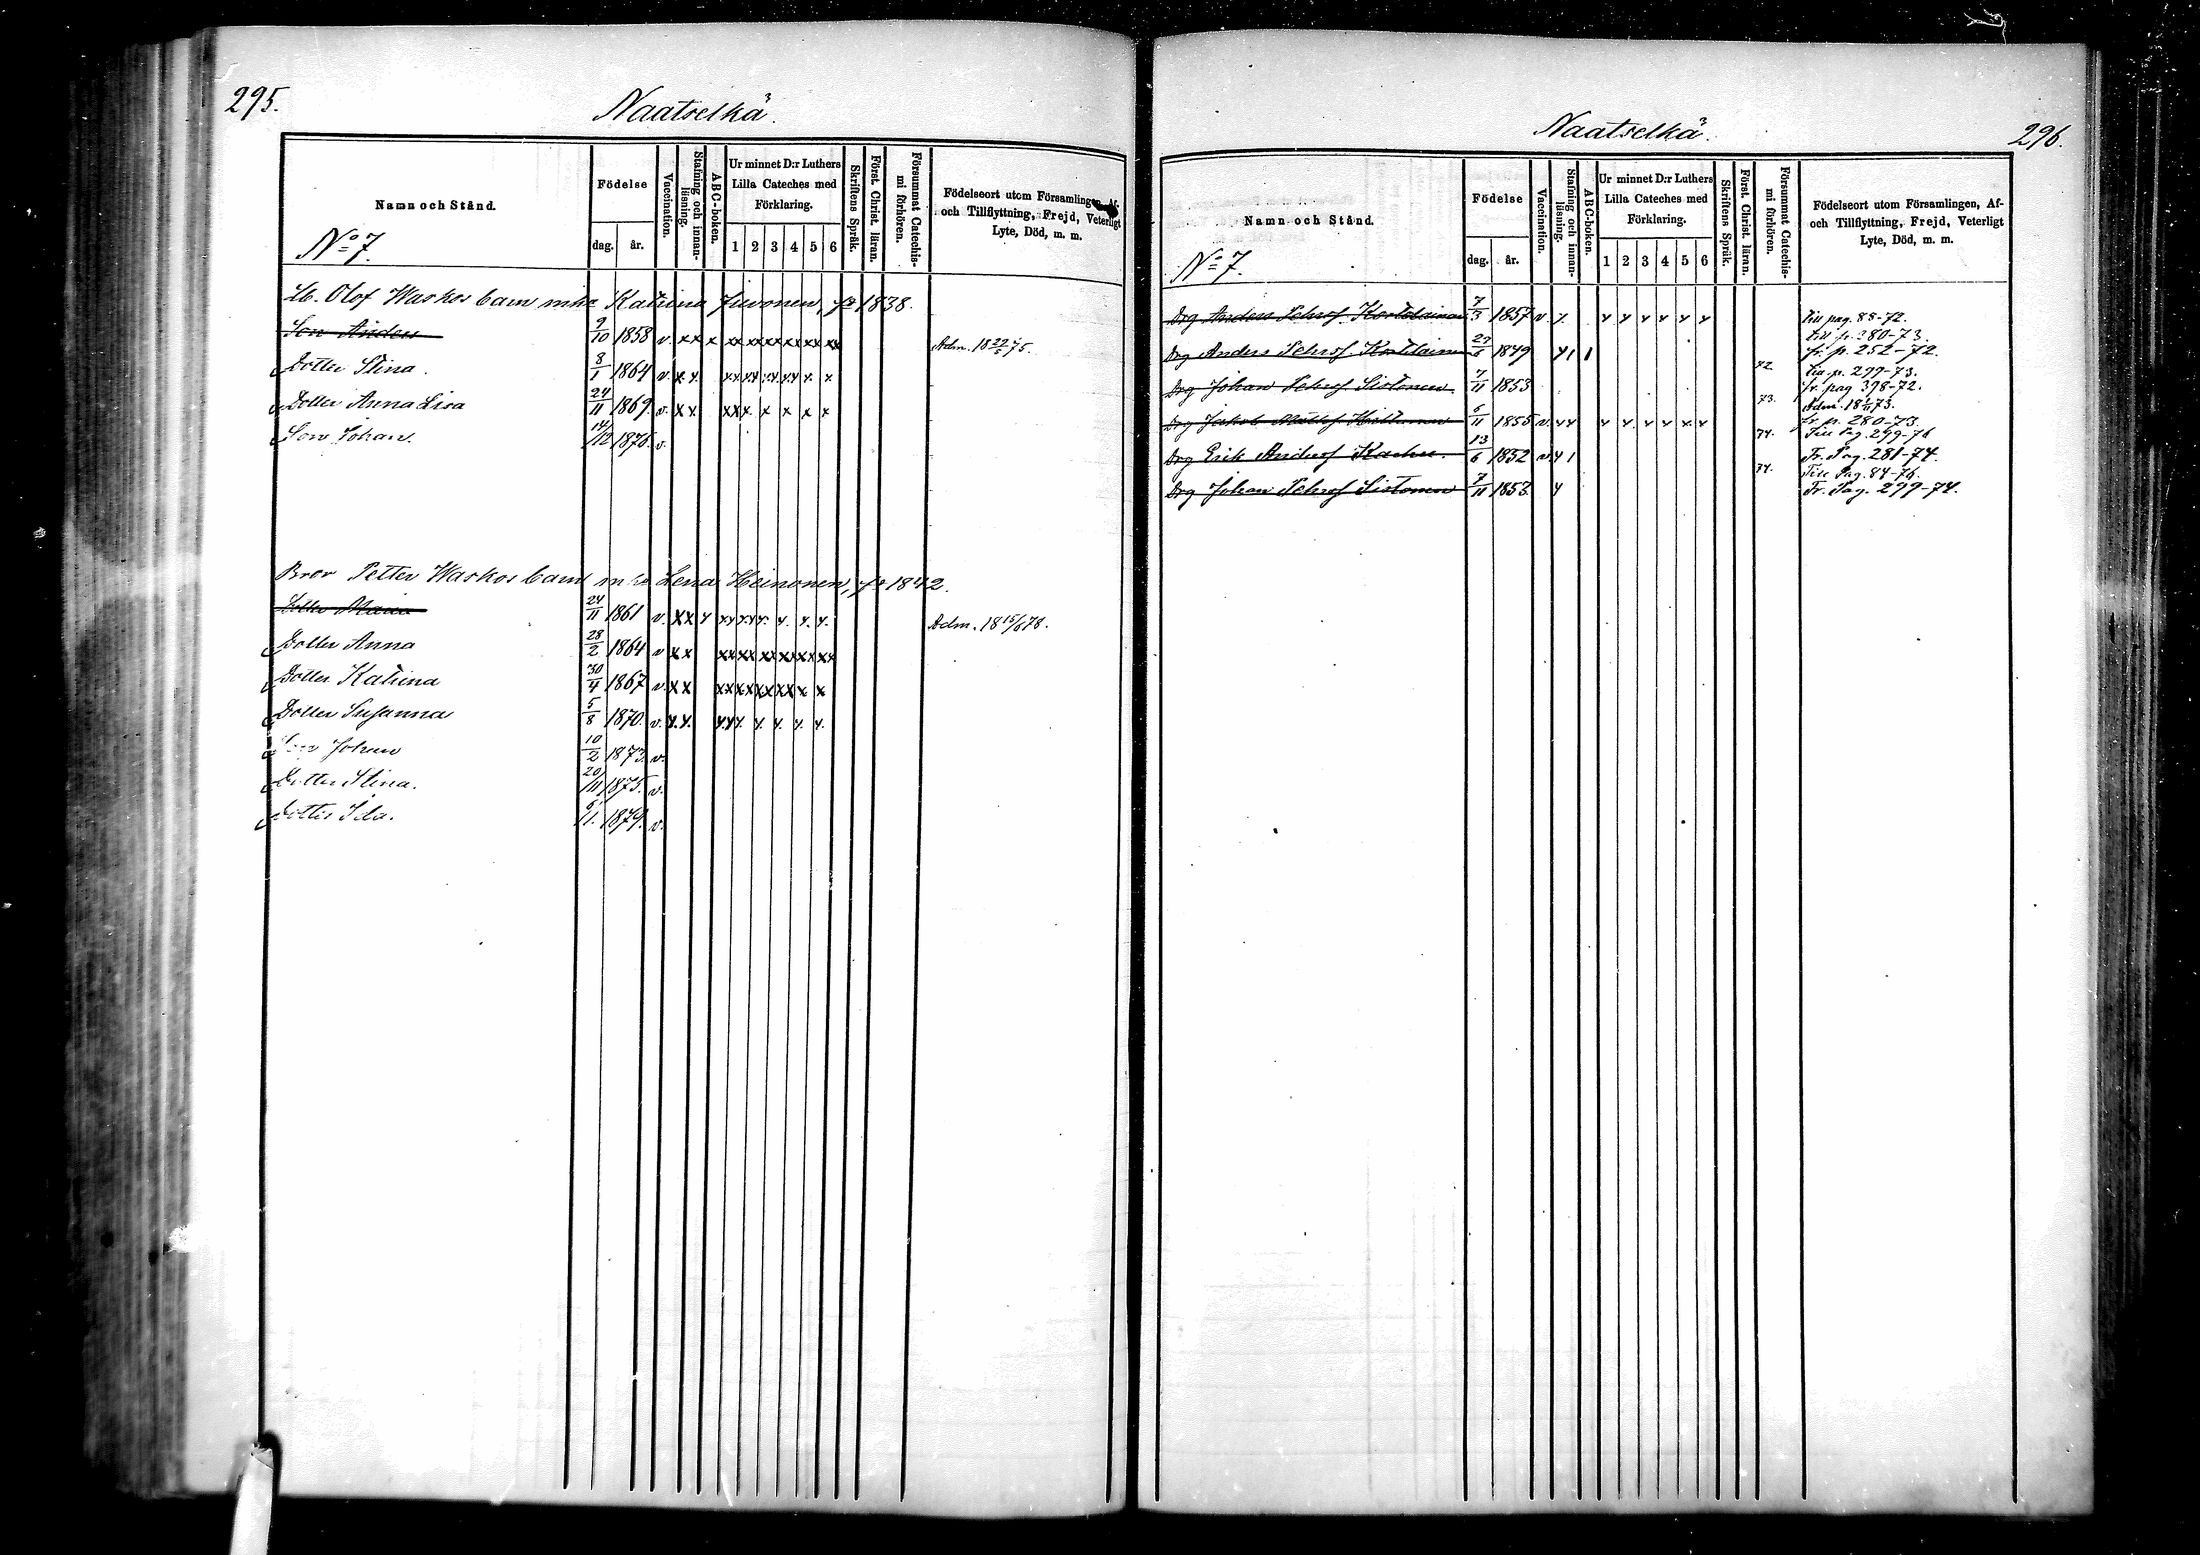 295.
Naatselkä.
Namn och Stånd.
Födelse
dag.
år.
Vaccination.
Stafning och innanläsning.
ABC-boken.
Ur minnet D:r Luthers
Lilla Cateches med
Förklaring.
1 2 3 4 5 6
Skriftens Språk.
Först. Christ. läran.
Försummat Catechismi förhören.
Födelseort utom Församlingen, Af-
och Tillflyttning, Frejd, Veterligt
Lyte, Död, m. m.
No 7.
Olof Waskos barn m. Katrina Juvonen, fr 1838.
Son Anders 9/10 1858 v. x x x xx xx xx xx xx xx Adm. 18 75.
Dotter Stina. 8/1 1864 v. x x. xx xx xx xx x. x
Dotter Anna Lisa 24/11 1869. v. x x. xx x. x x x x
Son Johan. 14/12 1876. v.
Bror Petter Waskos barn Lena Heinonen, fr 1842.
Dotter Maria 24/11 1861 v. x x x Adm. 18 15/6 78.
Dotter Anna 28/2 1864 v x x xx xx xx xx xx xx
Dotter Katrina 30/4 1867 v. x x xx xx xx xx x x
Dotter Susanna 5/8 1870. v. x. x.
Son Johan 10/2 1873. v.
Dotter Stina. 20/11 1875. v.
Dotter Ida. 6/1. 1879. v.
Naatselkä.
296.
Namn och Stånd.
Födelse
dag.
år.
Vaccination.
Stafning och innanläsning.
ABC-boken.
Ur minnet D:r Luthers
Lilla Cateches med
Förklaring.
1 2 3 4 5 6
Skriftens Språk.
Först. Christ. läran.
Försummat Catechismi förhören.
Födelseort utom Församlingen, Af-
och Tillflyttning, Frejd, Veterligt
Lyte, Död, m. m.
No 7.
Drg Anders Pehrsf. Kortelainen 7/3 1857 v. x. x x x x x x Till pag. 88-72.
till p. 280-73.
Drg Anders Pehrsf. 27/5 1849 fr. p. 252-72.
72 Till p. 299-73.
Drg Johan Pehrsf Sistonen. 7/11 1853 fr. pag 398-72.
73. Adm. 18 73.
Drg Jakob 5/11 1855 v. x x x x x x x x fr. p. 280-73.
74. Till Pag. 299-76
Drg Erik Andersf 13/6 1852 v. Fr. Pag. 281-74.
74. Till Pag. 84-76.
Drg Johan Pehrsf Sistonen 7/11 1853. x Fr. Pag. 299-74.